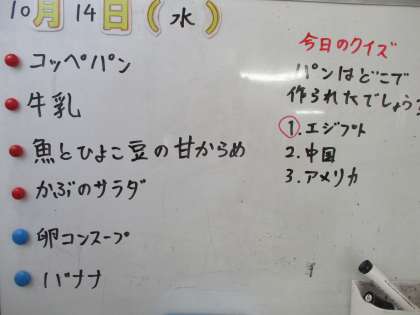 10月14日(水)
コッペパン
牛乳
魚とひよこ豆の甘からめ
かぶのサラダ
卵コンスープ
バナナ
今日のクイズ
パンはどこで
作られたでしょう?
1.エジプト
2.中国
3.アメリカ